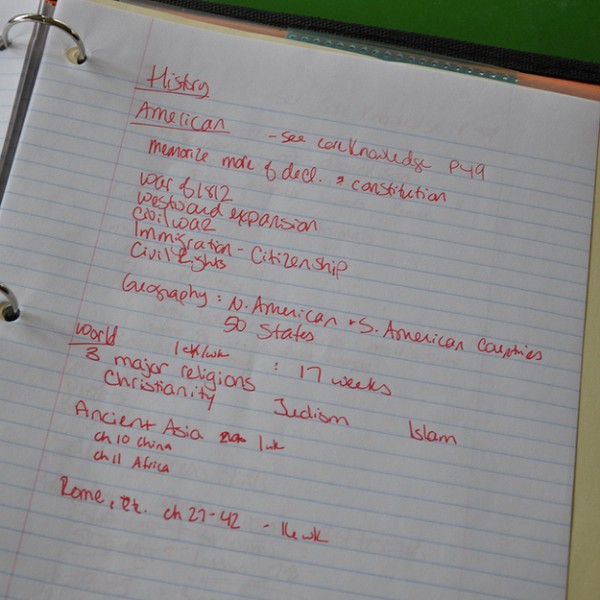 History
American - see coreKnowledge P49
memorize more of decl. & constitution
War of 1812
Westward expansion
Civil war
Immigration - Citizenship
Civil Rights
Geography : N. American + S. American Countries
50 States
World 1 ck/wk : 17 weeks
3 major religions
Christianity Judism Islam
Ancient Asia 1wk
ch 10 China
ch 11 Africa
Rome, etc. ch 27-42 - 16 wk